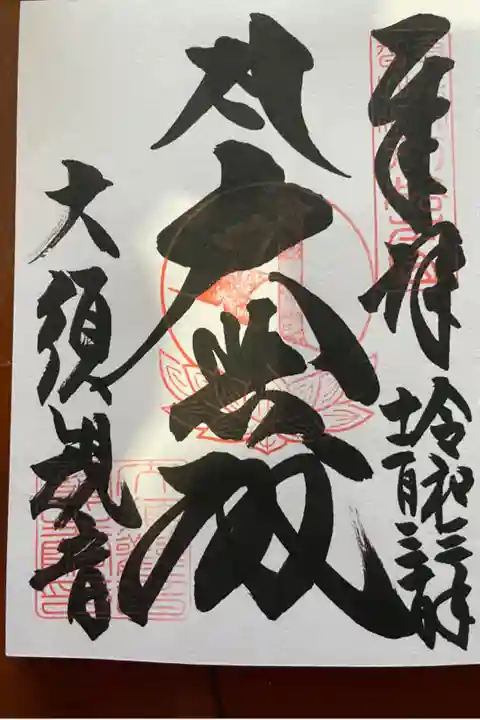 奉拝
令和三年
十一月三十日
大悲殿
大須観音